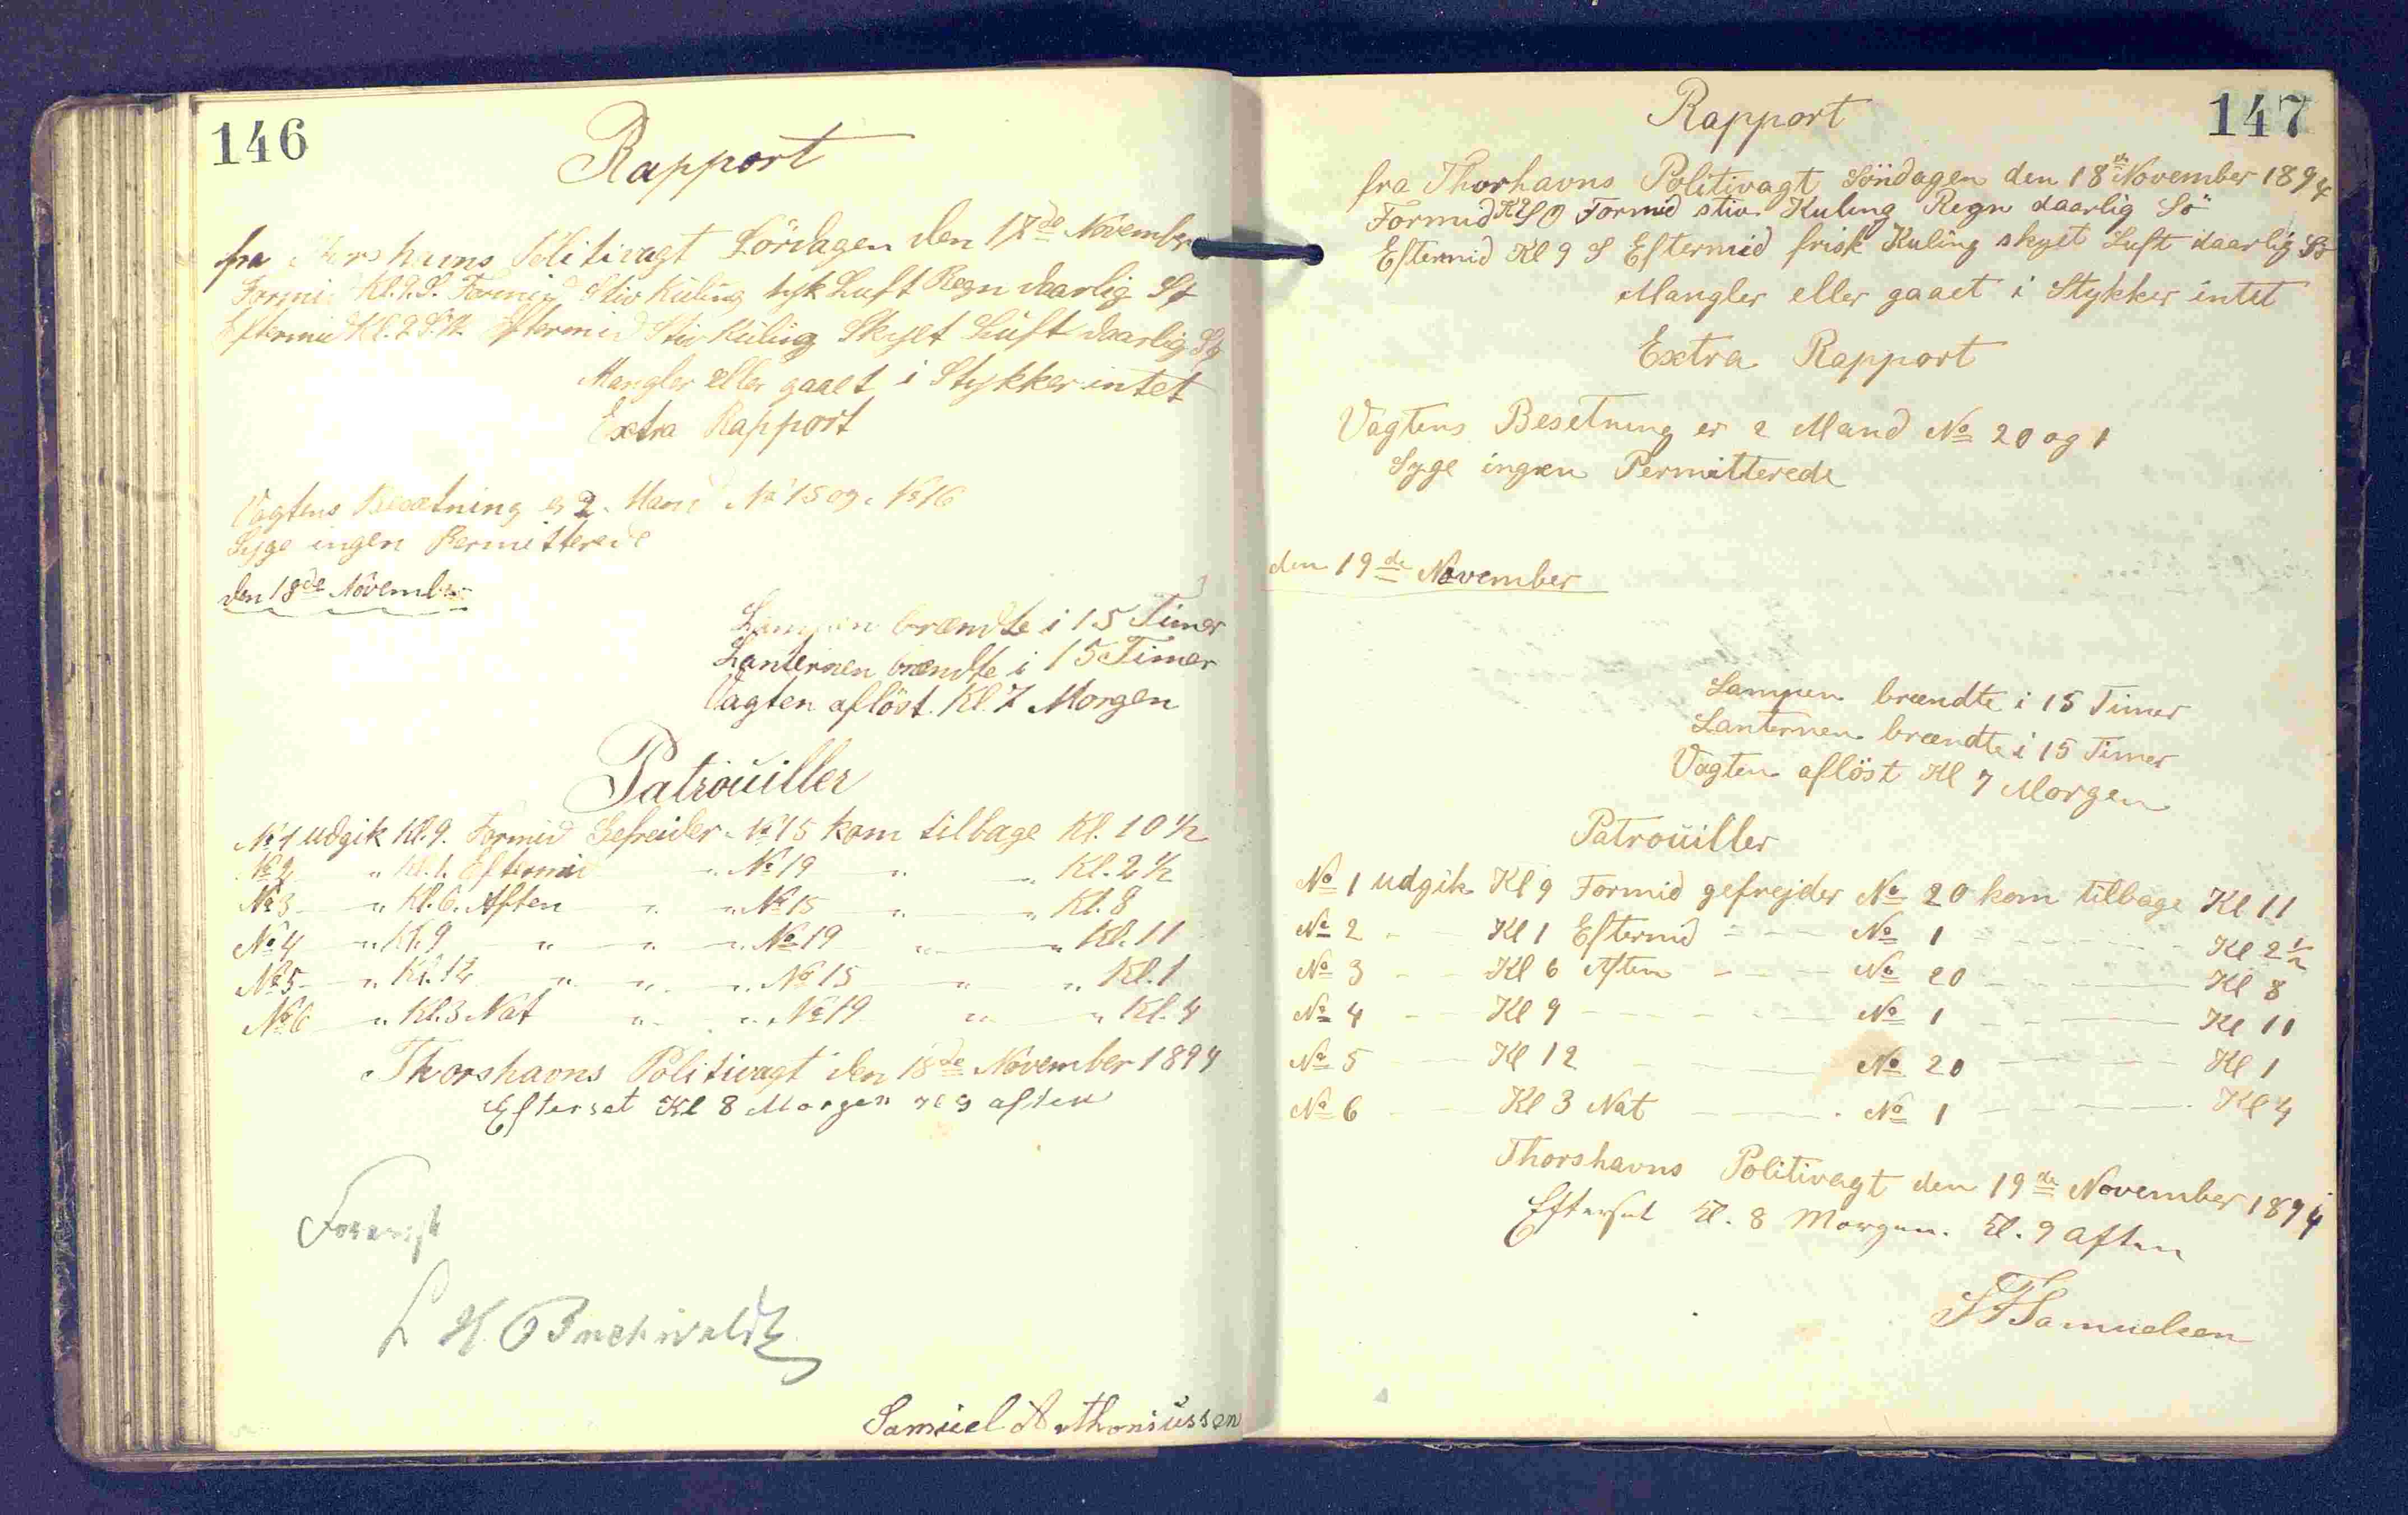 146
Rapport
fra Thorshavns Politivagt Lördagen den 17de November
Formid Kl. 9. S. Formid Stiv Kuling tyk Luft Regn daarlig Sø
Eftermid Kl. 9 Eftermid Stiv Kuling Skyet Luft daarlig Sø
Mangler eller gaaet i Stykker intet
Extra Rapport
Vagtens Besætning er 2. Mand No 15 og No 16
Syge ingen Permitterede
den 18de November
Lampen brændte i 15 Timer
Lanternen brændte i 15 Timer
Vagten aflöst. Kl. 7 Morgen
Patrouiller
No 1 udgik Kl. 9. Formid Gefreider No 15 kom tilbage Kl. 10 1/2
No 2 " Kl. 1. Eftermid " No 19 " " Kl. 2 1/2
No 3 " Kl. 6. Aften " " No 15 " " Kl. 8
No 4 " Kl. 9 " " " No 19 " " Kl. 11
No 5 " Kl. 12 " " " No 15 " " Kl. 1
No 6 " Kl. 3 Nat " " No 19 " " Kl. 4
Thorshavns Politivagt den 18de November 1894
Efterset Kl 8 Morgen Kl 9 aften
L H. Buchwaldt
Samuel Anthoniussen
147
Rapport
fra Thorhavns Politivagt Söndagen den 18de November 1894
Formid Kl 9 Formid stiv Kuling Regn daarlig Sö
Eftermid Kl 9 S Eftermid frisk Kuling skyet Luft daarlig Sö
Mangler eller gaaet i Stykker intet
Extra Rapport
Vagtens Besetning er 2 Mand No 20 og 1
Syge ingen Permitterede
den 19de November
Lampen brændte i 15 Timer
Lanternen brændte i 15 Timer
Vagten aflöst Kl 7 Morgen
Patrouiller
No 1 udgik Kl 9 Formid gefrejder No 20 kom tilbage Kl 11
No 2 - - Kl 1 Eftermid - - - No 1 - - - Kl 2 1/2
No 3 - - Kl 6 Aften - - - No 20 - - - Kl 8
No 4 - - Kl 9 - - - No 1 - - - Kl 11
No 5 - - Kl 12 - - - No 20 - - - Kl 1
No 6 - - Kl 3 Nat - - - No 1 - - - Kl 4
Thorshavns Politivagt den 19de November 1894
Efterset Kl. 8 Morgen. Kl. 9 aften
Samuelsen